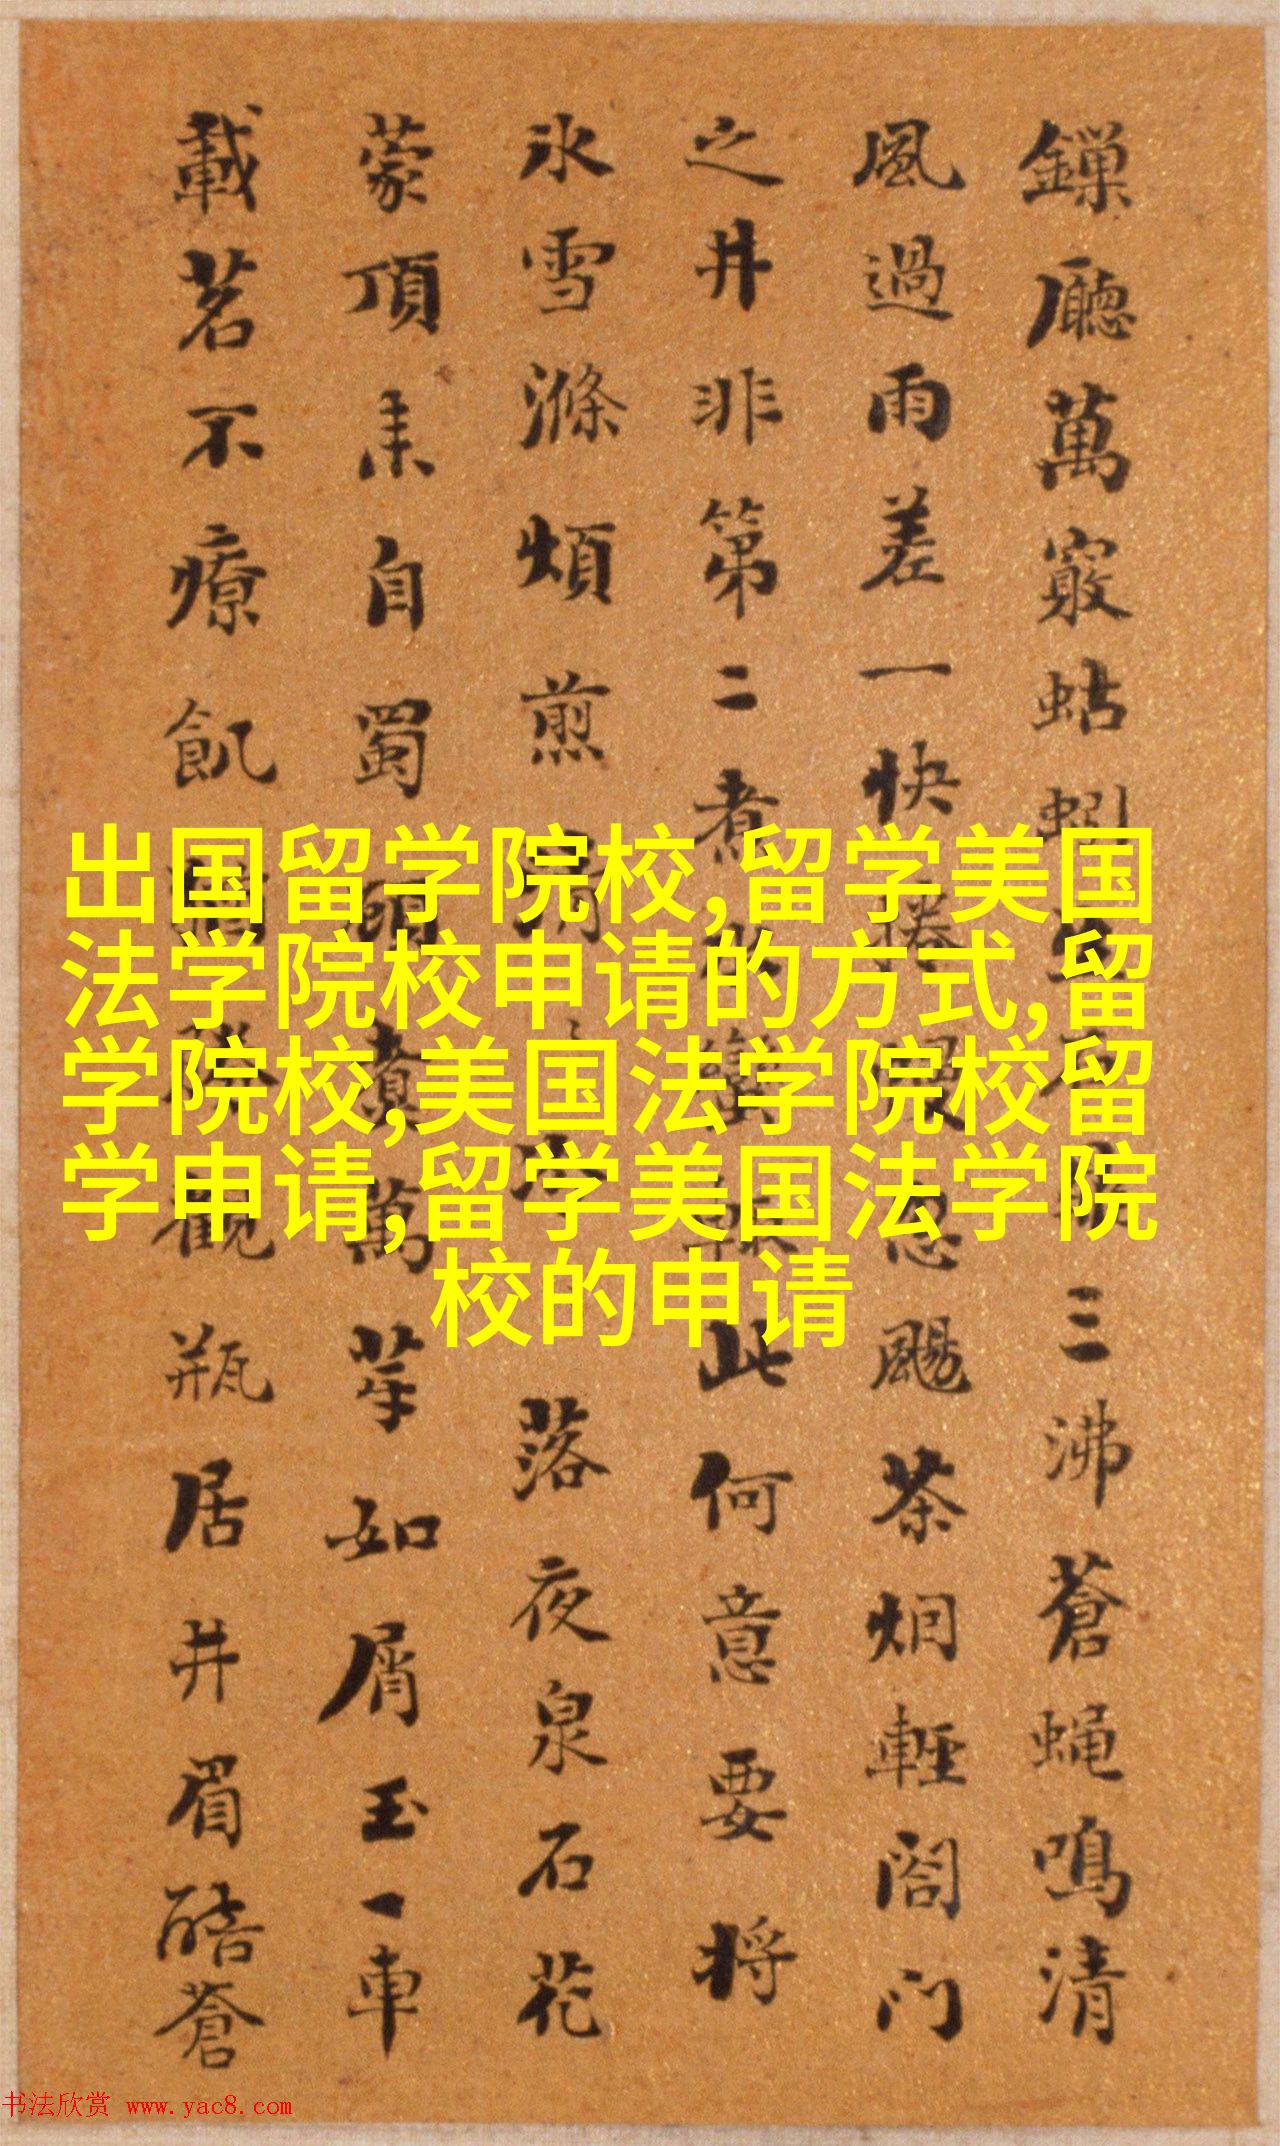 廳萬蚓三沸蒼蠅鳴清
風過雨差一快忽颺茶烟輕閤門
之井非第二煮此何意要將
氷雪滌煩煎清落夜泉石花
蒙頂来自蜀煮萬芽如屑玉一車
載茗不療飢觀瓶居井眉酷蒼
出国留学院校,留学美国
法学院校申请的方式,留
学院校,美国法学院校留
学申请,留学美国法学院
校的申请
书法欣赏 www.yac8.com